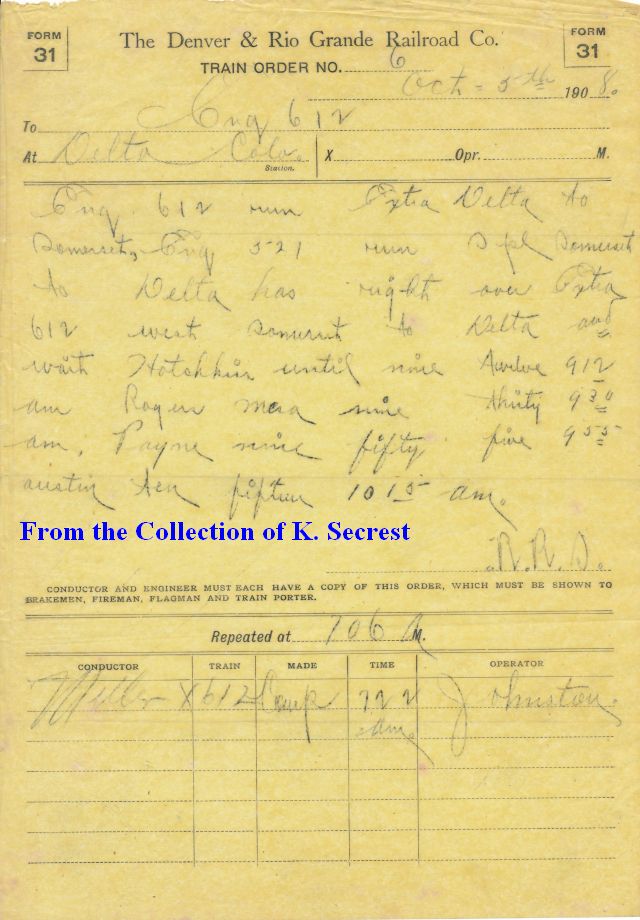 FORM 31
The Denver & Rio Grande Railroad Co.
FORM 31
TRAIN ORDER NO. 6
Oct = 5th 1908.
To Eng 612
At Delta Colo. X Opr. M.
Station.
Eng 612 run Extra Delta to
Somerset, Eng 521 run Spl Somerset
to Delta has right over Extra
612 west Somerset to Delta and
wait Hotchkiss until nine twelve 912
am Rogers mesa nine thirty 930
am, Payne nine fifty five 955
austin ten fifteen 1015 am.
From the Collection of K. Secrest
R.R.D.
CONDUCTOR AND ENGINEER MUST EACH HAVE A COPY OF THIS ORDER, WHICH MUST BE SHOWN TO
BRAKEMEN, FIREMAN, FLAGMAN AND TRAIN PORTER.
Repeated at 706 A M.
CONDUCTOR TRAIN MADE TIME OPERATOR
Miller X612 Comp 722 am. Johnston.